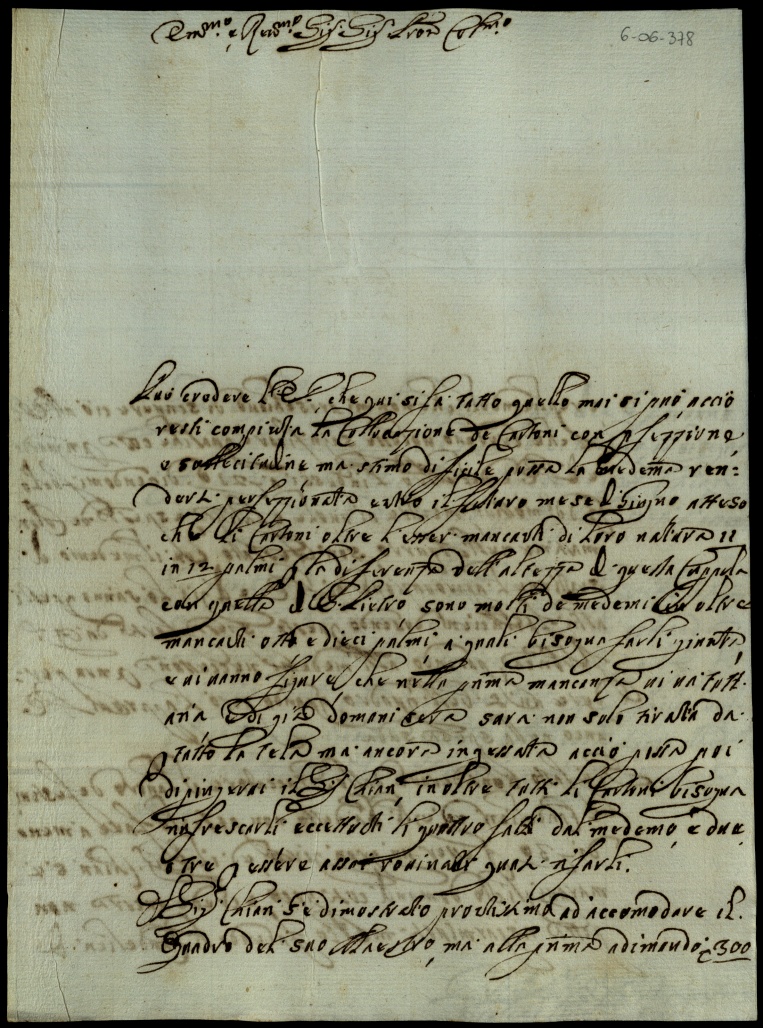 Em.mo e Rev.mo Sig. Sig. Pron Col.mo
6-06-378
Può credere V.E. che qui si fa tutto quello mai si può acciò
resti compiuta la Collocazione de Cartoni con pfezzione
e sollecitudine ma stimo dificile possa la medema ren:
dersi perfezzionata entro il futuro mese di Giugno atteso
che li Cartoni oltre l'esser mancanti di loro natura 11
in 12 palmi p la diferenza dell'altezza di questa Cuppula
con quella di S. Pietro sono molti de medemi in oltre
mancanti otto e dieci palmi a quali bisogna farli giunta
e vi vanno figure, che nella prima mancanza vi va tutt.
aria e di già domani sera sarà non solo tirata da
p tutto la tela ma ancora ingessata acciò possa poi
dipingervi il Sig. Chiari, in oltre tutti li Cartoni bisogna
rinfrescarli eccettuati li quattro fatti dal medemo, e due
o tre p essere assai rovinati quasi rifarli.
Il Sig. Chiari s'è dimostrato prontissimo ad accomodare il
Quadro del suo Maestro, ma alla prima adimandò 300